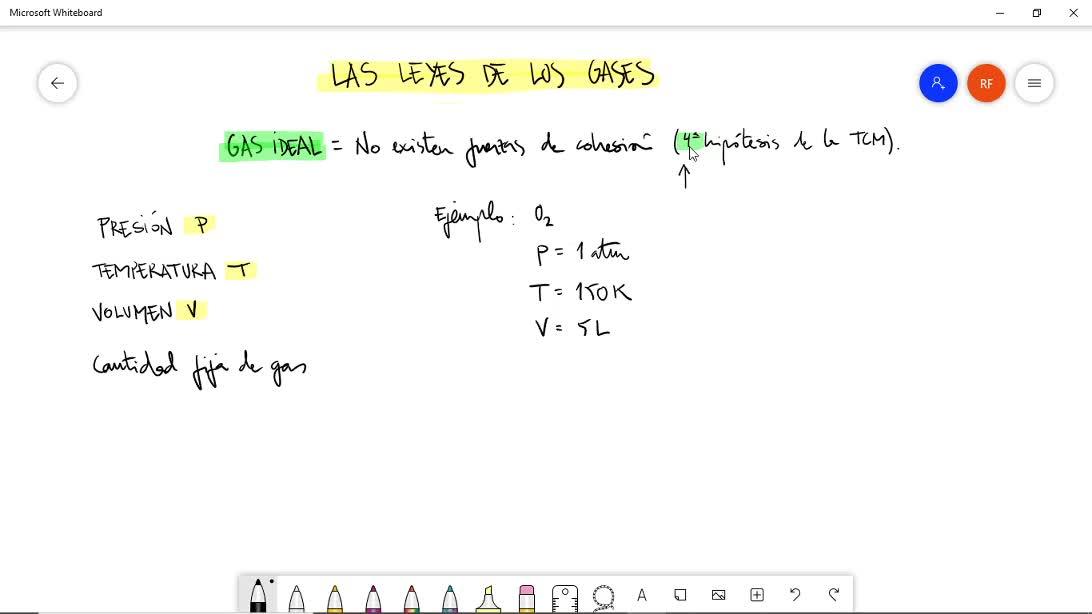 Microsoft Whiteboard
LAS LEYES DE LOS GASES
RF
GAS IDEAL = No existen fuerzas de cohesión (4ª hipótesis de la TCM).
PRESIÓN P
TEMPERATURA T
VOLUMEN V
Cantidad fija de gas
Ejemplo: O₂
P = 1 atm
T = 150 K
V = 5 L
A